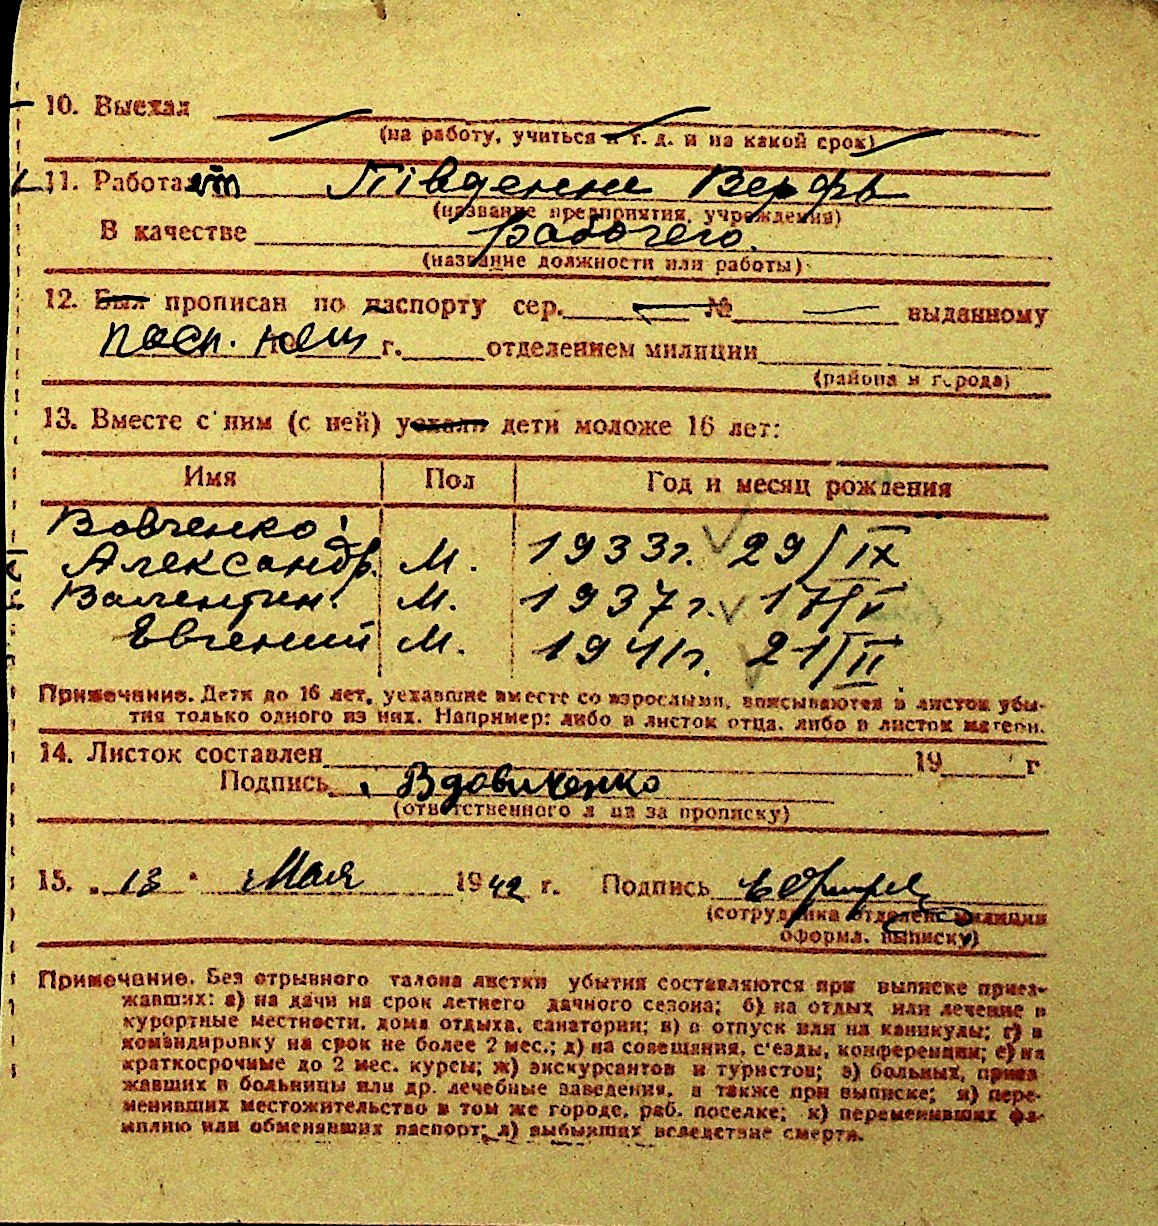 10. Выехал
(на работу, учиться и т. д. и на какой срок)
11. Работает Південни Верфь
(название предприятия, учреждения)
В качестве рабочего.
(название должности или работы)
12. Был прописан по паспорту сер. — № — выданному
пасп. г. отделением милиции
(района и города)
13. Вместе с ним (с ней) уехали дети моложе 16 лет:
Имя Пол Год и месяц рождения
Вовченко!
Александр. М. 1933г. 29/IX
Валентин. М. 1937г. 17/V
Евгений М. 1941г. 21/II
Примечание. Дети до 16 лет, уехавшие вместе со взрослыми, вписываются в листок убы-
тия только одного из них. Например: либо в листок отца, либо в листок матери.
14. Листок составлен 19 г
Подпись Вдовиченко
(ответственного лица за прописку)
15. „13" Мая 1942 г. Подпись
(сотрудника отделен. милиции
оформл. выписку)
Примечание. Без отрывного талона листки убытия составляются при выписке приез-
жавших: а) на дачи на срок летнего дачного сезона; б) на отдых или лечение в
курортные местности, дома отдыха, санатории; в) в отпуск или на каникулы; г) в
командировку на срок не более 2 мес.; д) на совещания, с'езды, конференции; е) на
краткосрочные до 2 мес. курсы; ж) экскурсантов и туристов; з) больных, приез
жавших в больницы или др. лечебные заведения, а также при выписке; и) пере-
менивших местожительство в том же городе, раб. поселке; к) переменивших фа-
милию или обменявших паспорт; л) выбывших вследствие смерти.